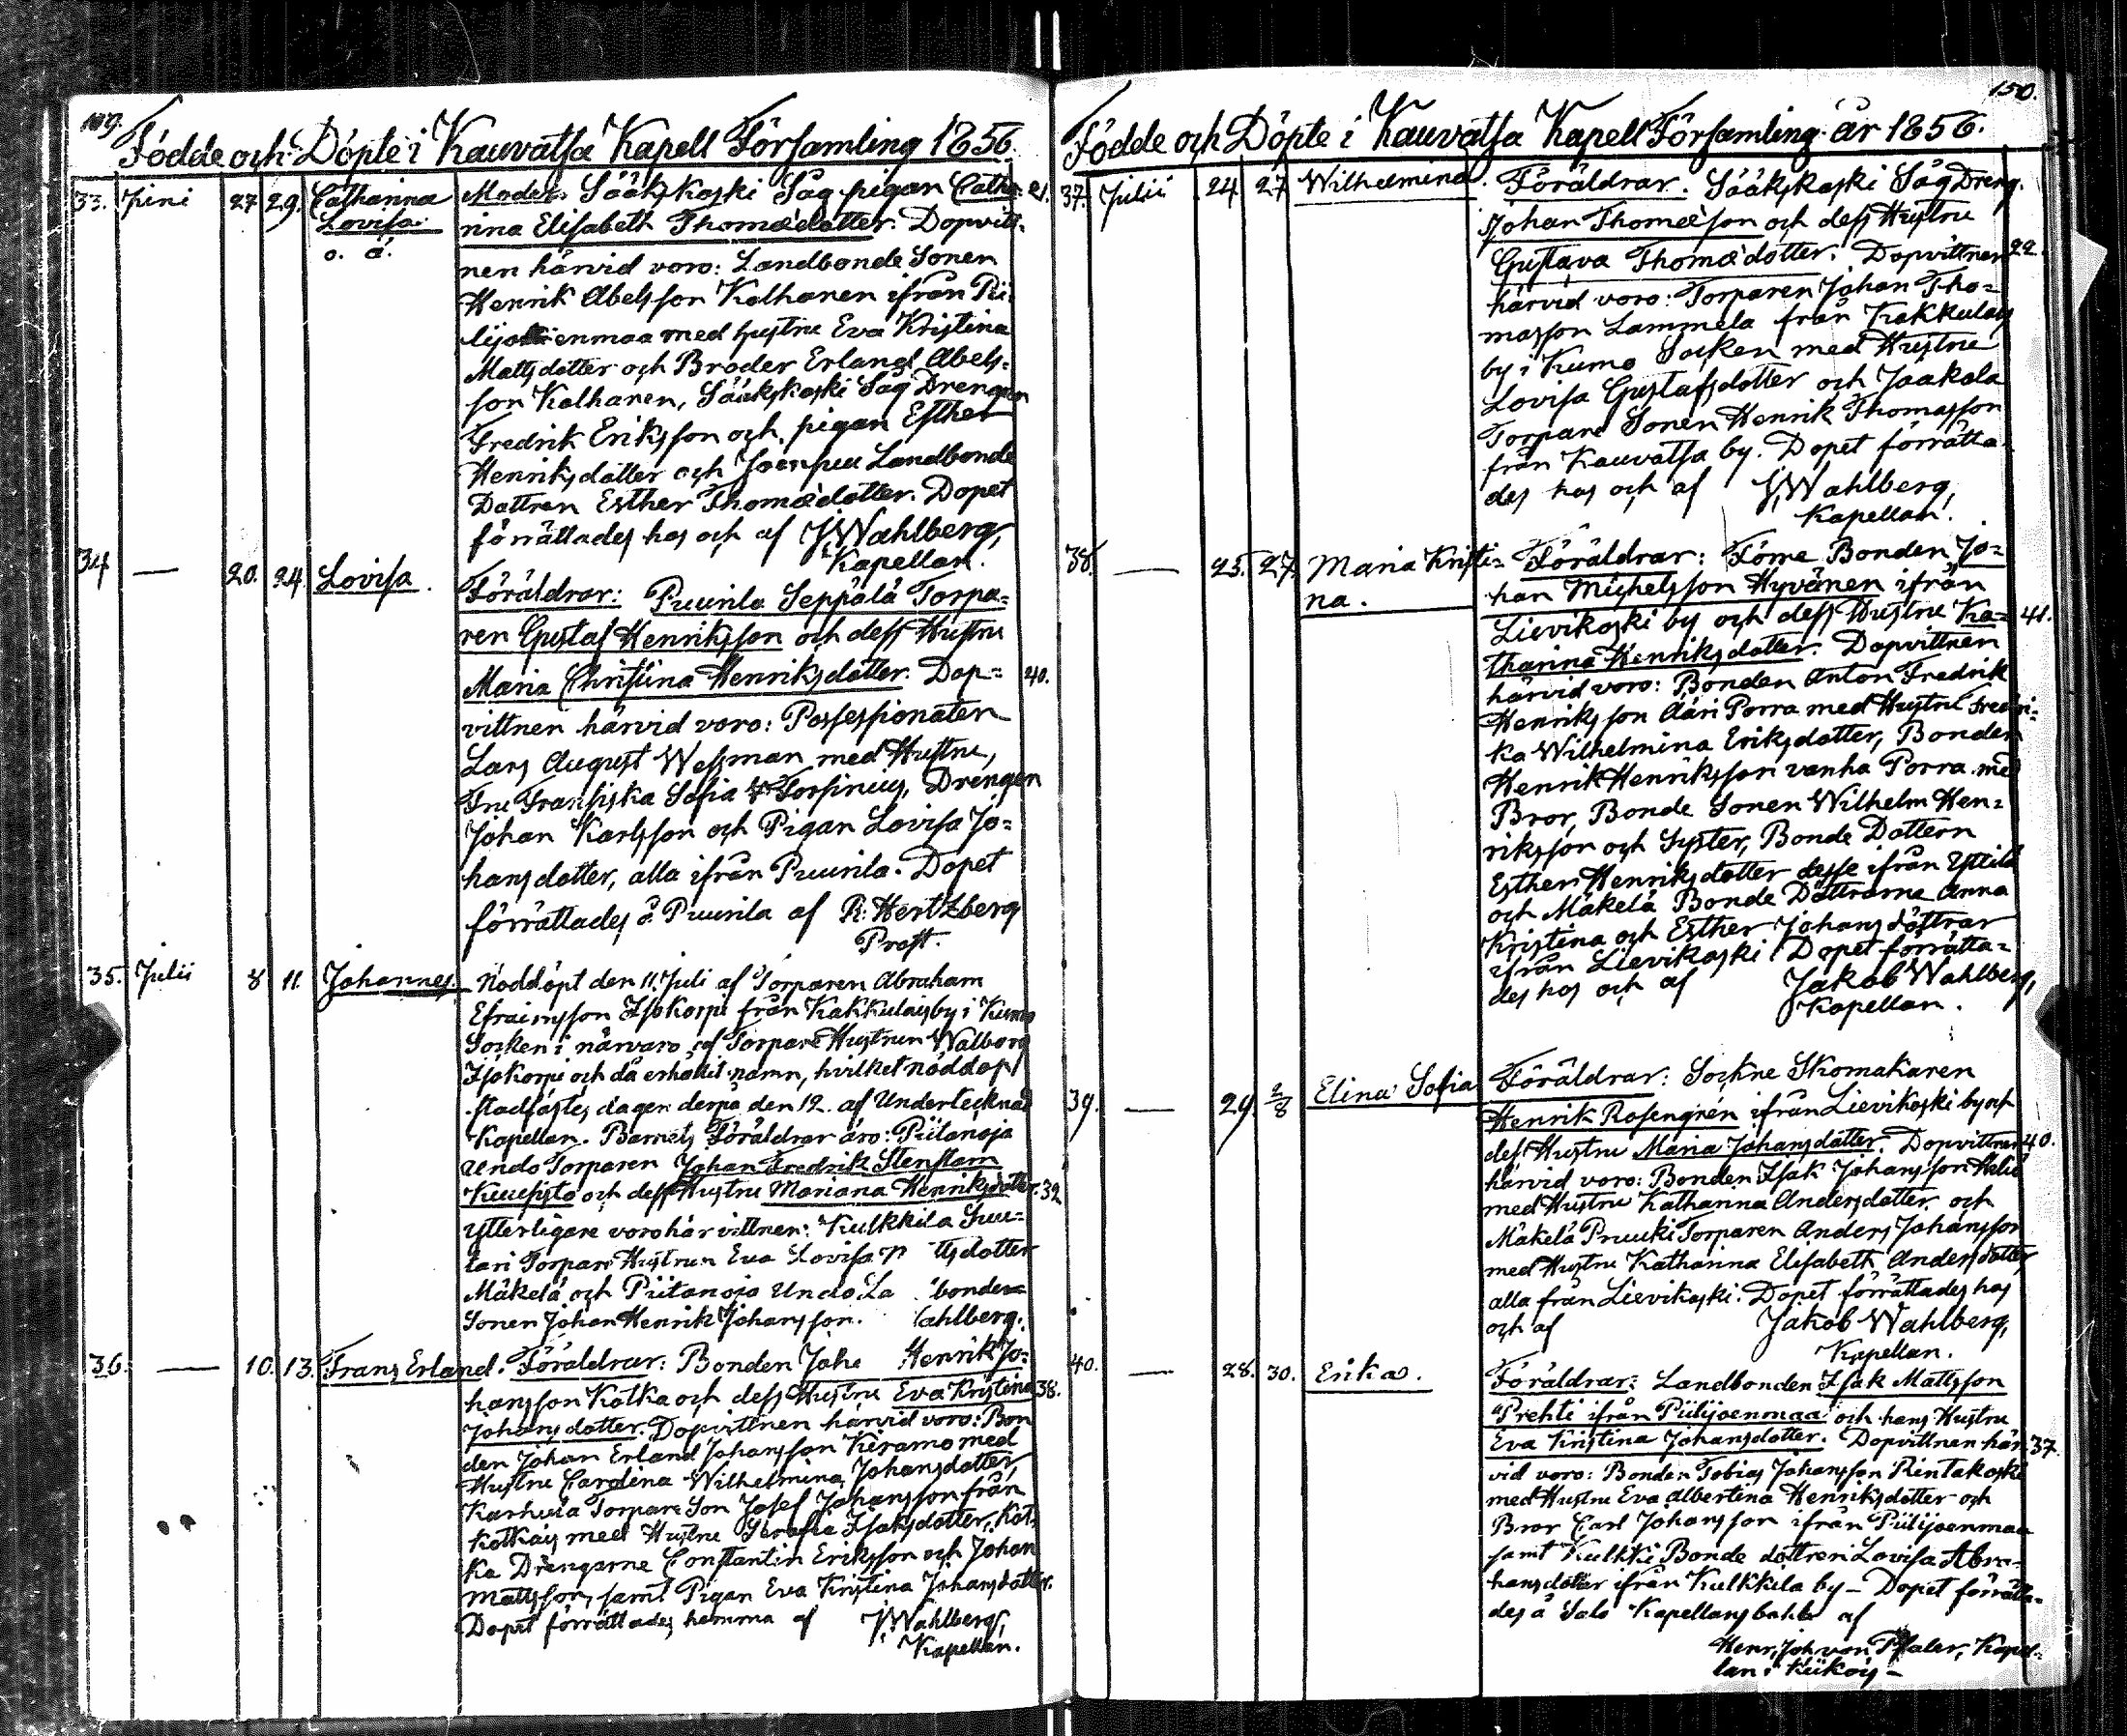 149.
Födde och Döpte i Kauvatsa Kapell Församling 1856.
33. Juni 27 29. Catharina Moder: Sääkskoski Såg pigan Catha- 21.
Lovisa rina Elisabeth Thomædotter. Dopvitt-
o. ä. nen härvid voro: Landbonde Sonen
Henrik Abelsson Kalhanen ifrån Pii-
lijoenmaa med hustru Eva Kristina
Mattsdotter och Broder Erland Abels-
son Kalhanen, Sääkskoski Såg Drengen
Fredrik Eriksson och pigan Esther
Henriksdotter och Joenpuu Landbonde
Dottren Esther Thomædotter. Dopet
förrättades hos och af J. Wahlberg,
Kapellan.
34 — 20. 24. Lovisa. Föräldrar: Puurila Seppälä Torpa=
ren Gustaf Henriksson och dess Hustru
Maria Christina Henriksdotter. Dop= 40.
vittnen härvid voro: Possessionaten
Lars August Wessman med Hustru,
Fru Fransiska Sofia Forsinius, Drengen
Johan Karlsson och Pigan Lovisa Jo=
hansdotter, alla ifrån Puurila. Dopet
förrättades å Puurila af R. Hertzberg
Prost.
35. Julii 8 11. Johannes. Nöddöpt den 11. Juli af Torparen Abraham
Efraimsson Isokorpi från Kakkulais by i Kumo
Socken i närvaro af Torpare Hustrun Walborg
Isokorpi och då erhållit namn, hvilket nöddop
stadfästes dagen derpå den 12. af Undertecknad
Kapellan. Barnets Föräldrar äro: Piitanoja
Undo Torparen Johan Fredrik Stenstam
Kuusisto och dess Hustru Mariana Henriksdotter. 32
Ytterligare voro här vittnen: Kulkkila Suu=
tari Torpare Hustrun Eva Lovisa tsdotter
Mäkelä och Piitanoja Undo La bonde=
Sonen Johan Henrik Johansson. ahlberg.
36. — 10. 13. Frans Erland. Föräldrar: Bonden Joha Henrik Jo=
hansson Kotka och dess Hustru Eva Kristina 38.
Johansdotter. Dopvittnen härvid voro: Bon
den Johan Erland Johansson Keramo med
Hustru Carolina Wilhelmina Johansdotter
Karhula Torpare Son Josef Johansson från
Kotkais med Hustru Serafia Isaksdotter, Kot-
ka Drengarne Constantin Eriksson och Johan
Mattsson, samt Pigan Eva Kristina Johansdotter.
Dopet förrättades hemma af J. Wahlberg,
Kapellan.
150.
Födde och Döpte i Kauvatsa Kapell Församling år 1856.
37. Julii 24 27 Wilhelmina. Föräldrar. Sääkskoski Såg Dreng.
Johan Thomæson och dess Hustru
Gustava Thomædotter. Dopvittnen 22.
härvid voro: Torparen Johan Tho=
masson Lammela från Kakkulais
by i Kumo Socken med Hustru
Lovisa Gustafsdotter och Jaakola
Torpare Sonen Henrik Thomasson
från Kauvatsa by. Dopet förrätta-
des hos och af J. Wahlberg,
Kapellan.
38. — 25. 27. Maria Kristi= Föräldrar: Före Bonden Jo=
na. han Michelsson Hyvönen ifrån
Lievikoski by och dess Hustru Ka= 41.
tharina Henriksdotter. Dopvittnen
härvid voro: Bonden Anton Fredrik
Henriksson Ääri Porra med Hustru Fredri-
ka Wilhelmina Eriksdotter, Bonden
Henrik Henriksson vanha Porra med
Bror, Bonde Sonen Wilhelm Hen=
riksson och Syster, Bonde Dottern
Esther Henriksdotter desse ifrån Yttilä
och Mäkelä Bonde Döttrarne Anna
Kristina och Esther Johansdöttrar
ifrån Lievikoski. Dopet förrätta=
des hos och af Jakob Wahlberg,
Kapellan.
39. — 29. 2/8 Elina Sofia Föräldrar: Sockne Skomakaren
Henrik Rosengrén ifrån Lievikoski by och
dess Hustru Maria Johansdotter. Dopvittnen 40.
härvid voro: Bonden Isak Johansson
med Hustru Katharina Andersdotter och
Mäkelä Pruuki Torparen Anders Johansson
med Hustru Katharina Elisabeth Andersdotter,
alla från Lievikoski. Dopet förrättades hos
och af Jakob Wahlberg,
Kapellan.
40. — 28. 30. Erika. Föräldrar: Landbonden Isak Mattsson
Prehti ifrån Piilijoenmaa och hans Hustru
Eva Kristina Johansdotter. Dopvittnen här- 37.
vid voro: Bonden Tobias Johansson Rintakoski
med Hustru Eva Albertina Henriksdotter och
Bror Carl Johansson ifrån Piilijoenmaa
samt Kulkki Bonde dottren Lovisa Abra-
hansdotter ifrån Kulkkila by – Dopet förrätta-
des å Salo Kapellansbohle af
Henr. Joh. von Pfaler, Kapel-
lan i Kiikois –